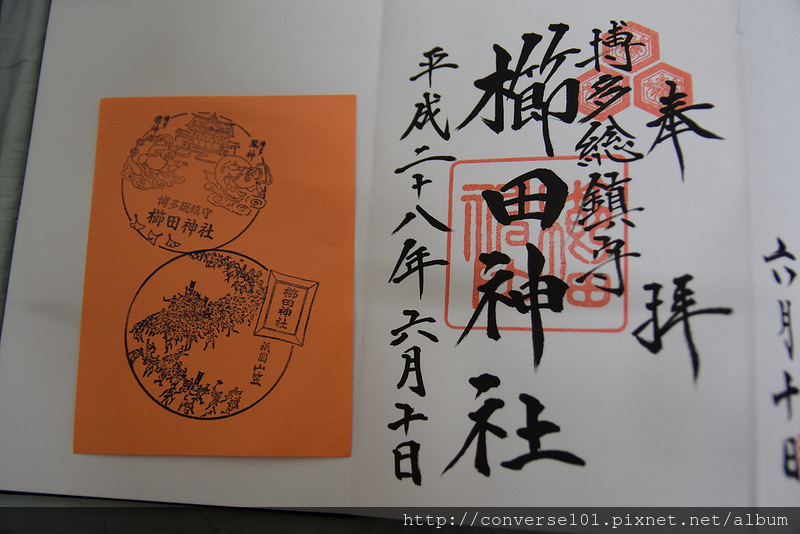 奉拝
博多総鎮守
櫛田神社
平成二十八年六月十日
六月十日
博多総鎮守
櫛田神社
櫛田神社
祇園山笠
http://converse101.pixnet.net/album